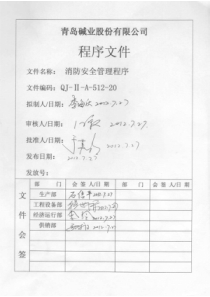 青岛碱业股份有限公司
程序文件
文件名称： 消防安全管理程序
文件编码： QJ-Ⅱ-A-512-20
拟制人/日期： 2012.7.27
审核人/日期： 2012.7.27
批准人/日期：
发布日期： 2012.7.27
发放号：
部 门 会签人/日期 部 门 会签人/日期
文件会签
生产部 2012.7.27
工程设备部
经济运行部
供销部